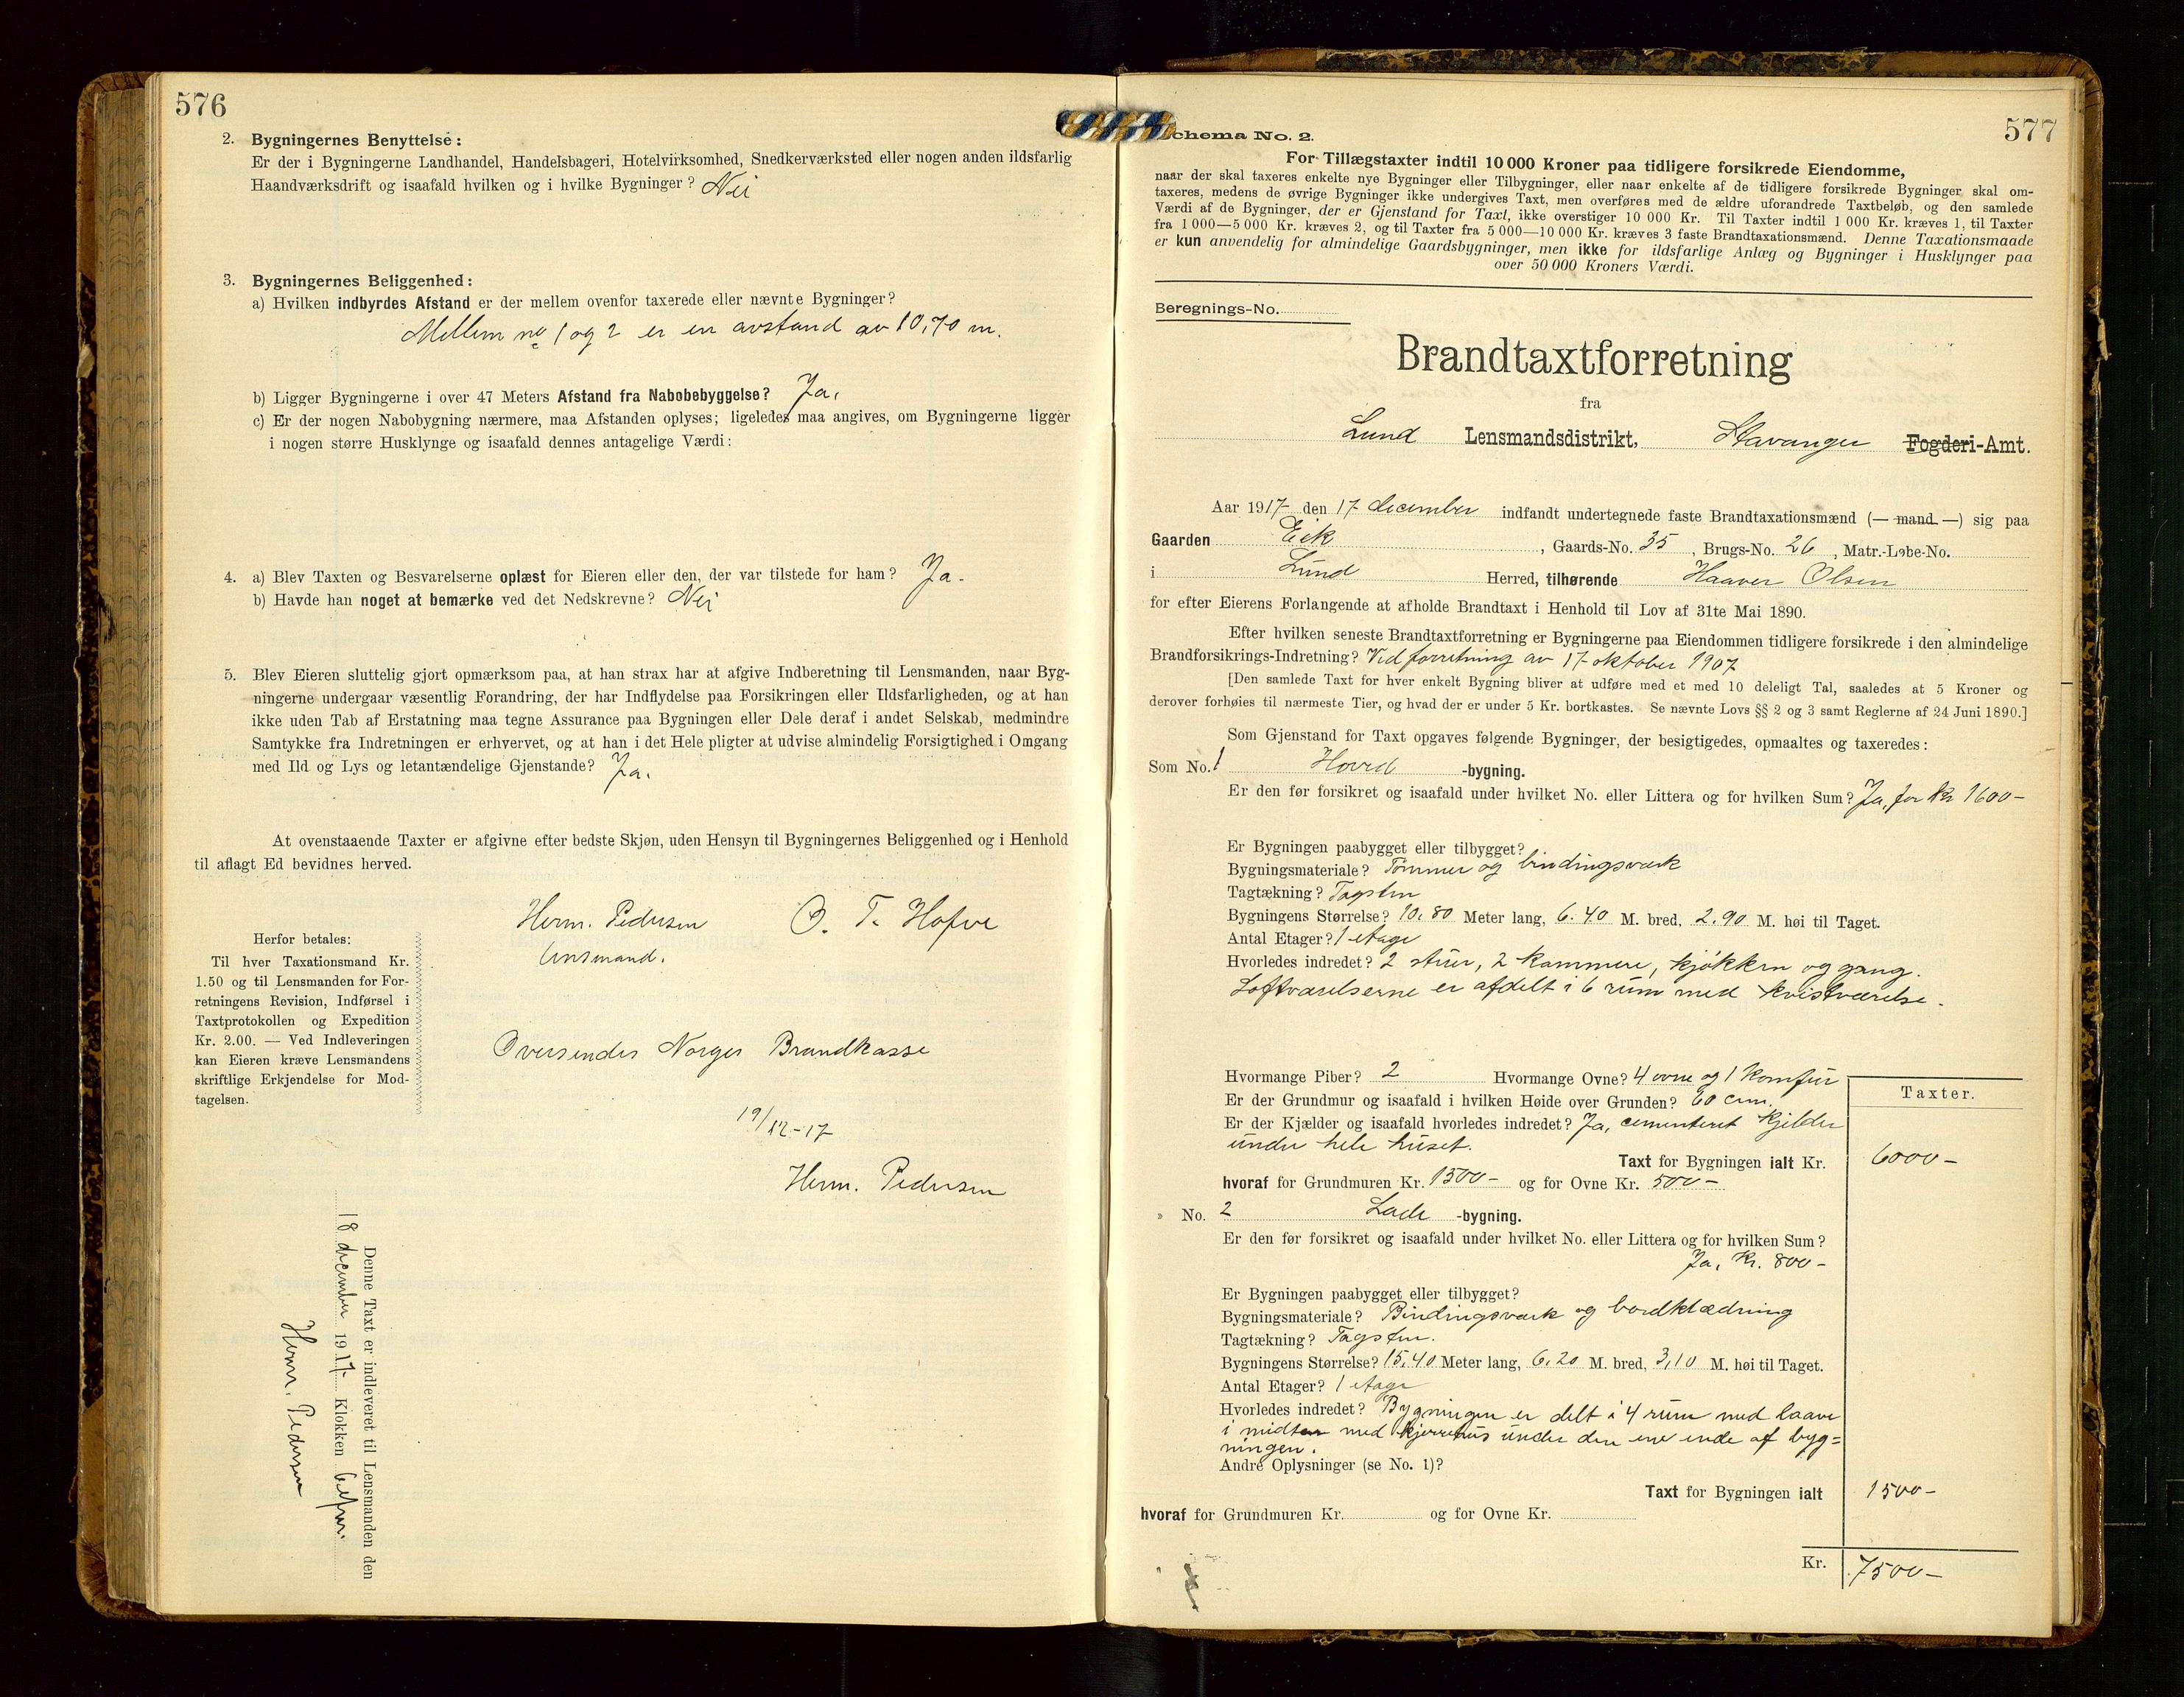 576
2. Bygningernes Benyttelse:
Er der i Bygningerne Landhandel, Handelsbageri, Hotelvirksomhed, Snedkerværksted eller nogen anden ildsfarlig
Haandværksdrift og isaafald hvilken og i hvilke Bygninger? Nei
3. Bygningernes Beliggenhed:
a) Hvilken indbyrdes Afstand er der mellem ovenfor taxerede eller nævnte Bygninger?
Mellem no 1 og 2 er en avstand av 10,70 m.
b) Ligger Bygningerne i over 47 Meters Afstand fra Nabobebyggelse? Ja.
c) Er der nogen Nabobygning nærmere, maa Afstanden oplyses; ligeledes maa angives, om Bygningerne ligger
i nogen større Husklynge og isaafald dennes antagelige Værdi:
4. a) Blev Taxten og Besvarelserne oplæst for Eieren eller den, der var tilstede for ham? Ja.
b) Havde han noget at bemærke ved det Nedskrevne? Nei
5. Blev Eieren sluttelig gjort opmærksom paa, at han strax har at afgive Indberetning til Lensmanden, naar Byg-
ningerne undergaar væsentlig Forandring, der har Indflydelse paa Forsikringen eller Ildsfarligheden, og at han
ikke uden Tab af Erstatning maa tegne Assurance paa Bygningen eller Dele deraf i andet Selskab, medmindre
Samtykke fra Indretningen er erhvervet, og at han i det Hele pligter at udvise almindelig Forsigtighed i Omgang
med Ild og Lys og letantændelige Gjenstande? Ja.
At ovenstaaende Taxter er afgivne efter bedste Skjøn, uden Hensyn til Bygningernes Beliggenhed og i Henhold
til aflagt Ed bevidnes herved.
Herm. Pedersen O. T. Hofve
lensmand.
Herfor betales:
Til hver Taxationsmand Kr.
1.50 og til Lensmanden for For-
retningens Revision, Indførsel i
Taxtprotokollen og Expedition
Kr. 2.00. — Ved Indleveringen
kan Eieren kræve Lensmandens
skriftlige Erkjendelse for Mod-
tagelsen.
Oversendes Norges Brandkasse
19/12-17
Herm. Pedersen
Denne Taxt er indleveret til Lensmanden den
18 december 1917 Klokken 6 efm.
Herm. Pedersen
577
Schema No. 2.
For Tillægstaxter indtil 10 000 Kroner paa tidligere forsikrede Eiendomme,
naar der skal taxeres enkelte nye Bygninger eller Tilbygninger, eller naar enkelte af de tidligere forsikrede Bygninger skal om-
taxeres, medens de øvrige Bygninger ikke undergives Taxt, men overføres med de ældre uforandrede Taxtbeløb, og den samlede
Værdi af de Bygninger, der er Gjenstand for Taxt, ikke overstiger 10 000 Kr. Til Taxter indtil 1 000 Kr. kræves 1, til Taxter
fra 1 000—5 000 Kr. kræves 2, og til Taxter fra 5 000—10 000 Kr. kræves 3 faste Brandtaxationsmænd. Denne Taxationsmaade
er kun anvendelig for almindelige Gaardsbygninger, men ikke for ildsfarlige Anlæg og Bygninger i Husklynger paa
over 50 000 Kroners Værdi.
Beregnings-No.
Brandtaxtforretning
fra
Lund Lensmandsdistrikt, Stavanger Fogderi-Amt.
Aar 1917 den 17 december indfandt undertegnede faste Brandtaxationsmænd (— mand —) sig paa
Gaarden Eik, Gaards-No. 35, Brugs-No. 26, Matr.-Løbe-No.
i Lund Herred, tilhørende Haaver Olsen
for efter Eierens Forlangende at afholde Brandtaxt i Henhold til Lov af 31te Mai 1890.
Efter hvilken seneste Brandtaxtforretning er Bygningerne paa Eiendommen tidligere forsikrede i den almindelige
Brandforsikrings-Indretning? Ved forretning av 17 oktober 1907
[Den samlede Taxt for hver enkelt Bygning bliver at udføre med et med 10 deleligt Tal, saaledes at 5 Kroner og
derover forhøies til nærmeste Tier, og hvad der er under 5 Kr. bortkastes. Se nævnte Lovs §§ 2 og 3 samt Reglerne af 24 Juni 1890.]
Som Gjenstand for Taxt opgaves følgende Bygninger, der besigtigedes, opmaaltes og taxeredes:
Som No. 1 Hoved -bygning.
Er den før forsikret og isaafald under hvilket No. eller Littera og for hvilken Sum? Ja, for kr 1600-
Er Bygningen paabygget eller tilbygget?
Bygningsmateriale? Tømmer og bindingsværk
Tagtækning? Tagsten
Bygningens Størrelse? 10.80 Meter lang, 6.40 M. bred, 2.90 M. høi til Taget.
Antal Etager? 1 etage
Hvorledes indredet? 2 stuer, 2 kammere, kjøkken og gang.
Loftværelserne er afdelt i 6 rum med kvistværelse.
Hvormange Piber? 2 Hvormange Ovne? 4 ovne og 1 komfur
Taxter.
Er der Grundmur og isaafald i hvilken Høide over Grunden? 60 cm.
Er der Kjælder og isaafald hvorledes indredet? Ja, cementeret kjelder
under hele huset.
Taxt for Bygningen ialt Kr. 6000-
hvoraf for Grundmuren Kr. 1500- og for Ovne Kr. 500-
» No. 2 Lade -bygning.
Er den før forsikret og isaafald under hvilket No. eller Littera og for hvilken Sum?
Ja, Kr. 800-
Er Bygningen paabygget eller tilbygget?
Bygningsmateriale? Bindingsværk og bordklædning
Tagtækning? Tagsten.
Bygningens Størrelse? 15.40 Meter lang, 6.20 M. bred, 3,10 M. høi til Taget.
Antal Etager? 1 etage
Hvorledes indredet? Bygningen er delt i 4 rum med laave
i midten med kjerrehus under den ene ende af byg=
ningen.
Andre Oplysninger (se No. 1)?
Taxt for Bygningen ialt 1500-
hvoraf for Grundmuren Kr. og for Ovne Kr.
Kr. 7500-